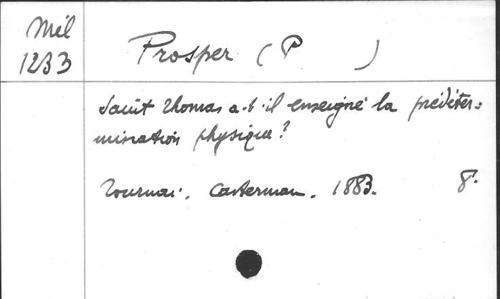 Mél
1233
Prosper (P )
Saint Thomas a-t-il enseigné la prédéter=
mination physique?
Tournai. Casterman. 1883. 8°.